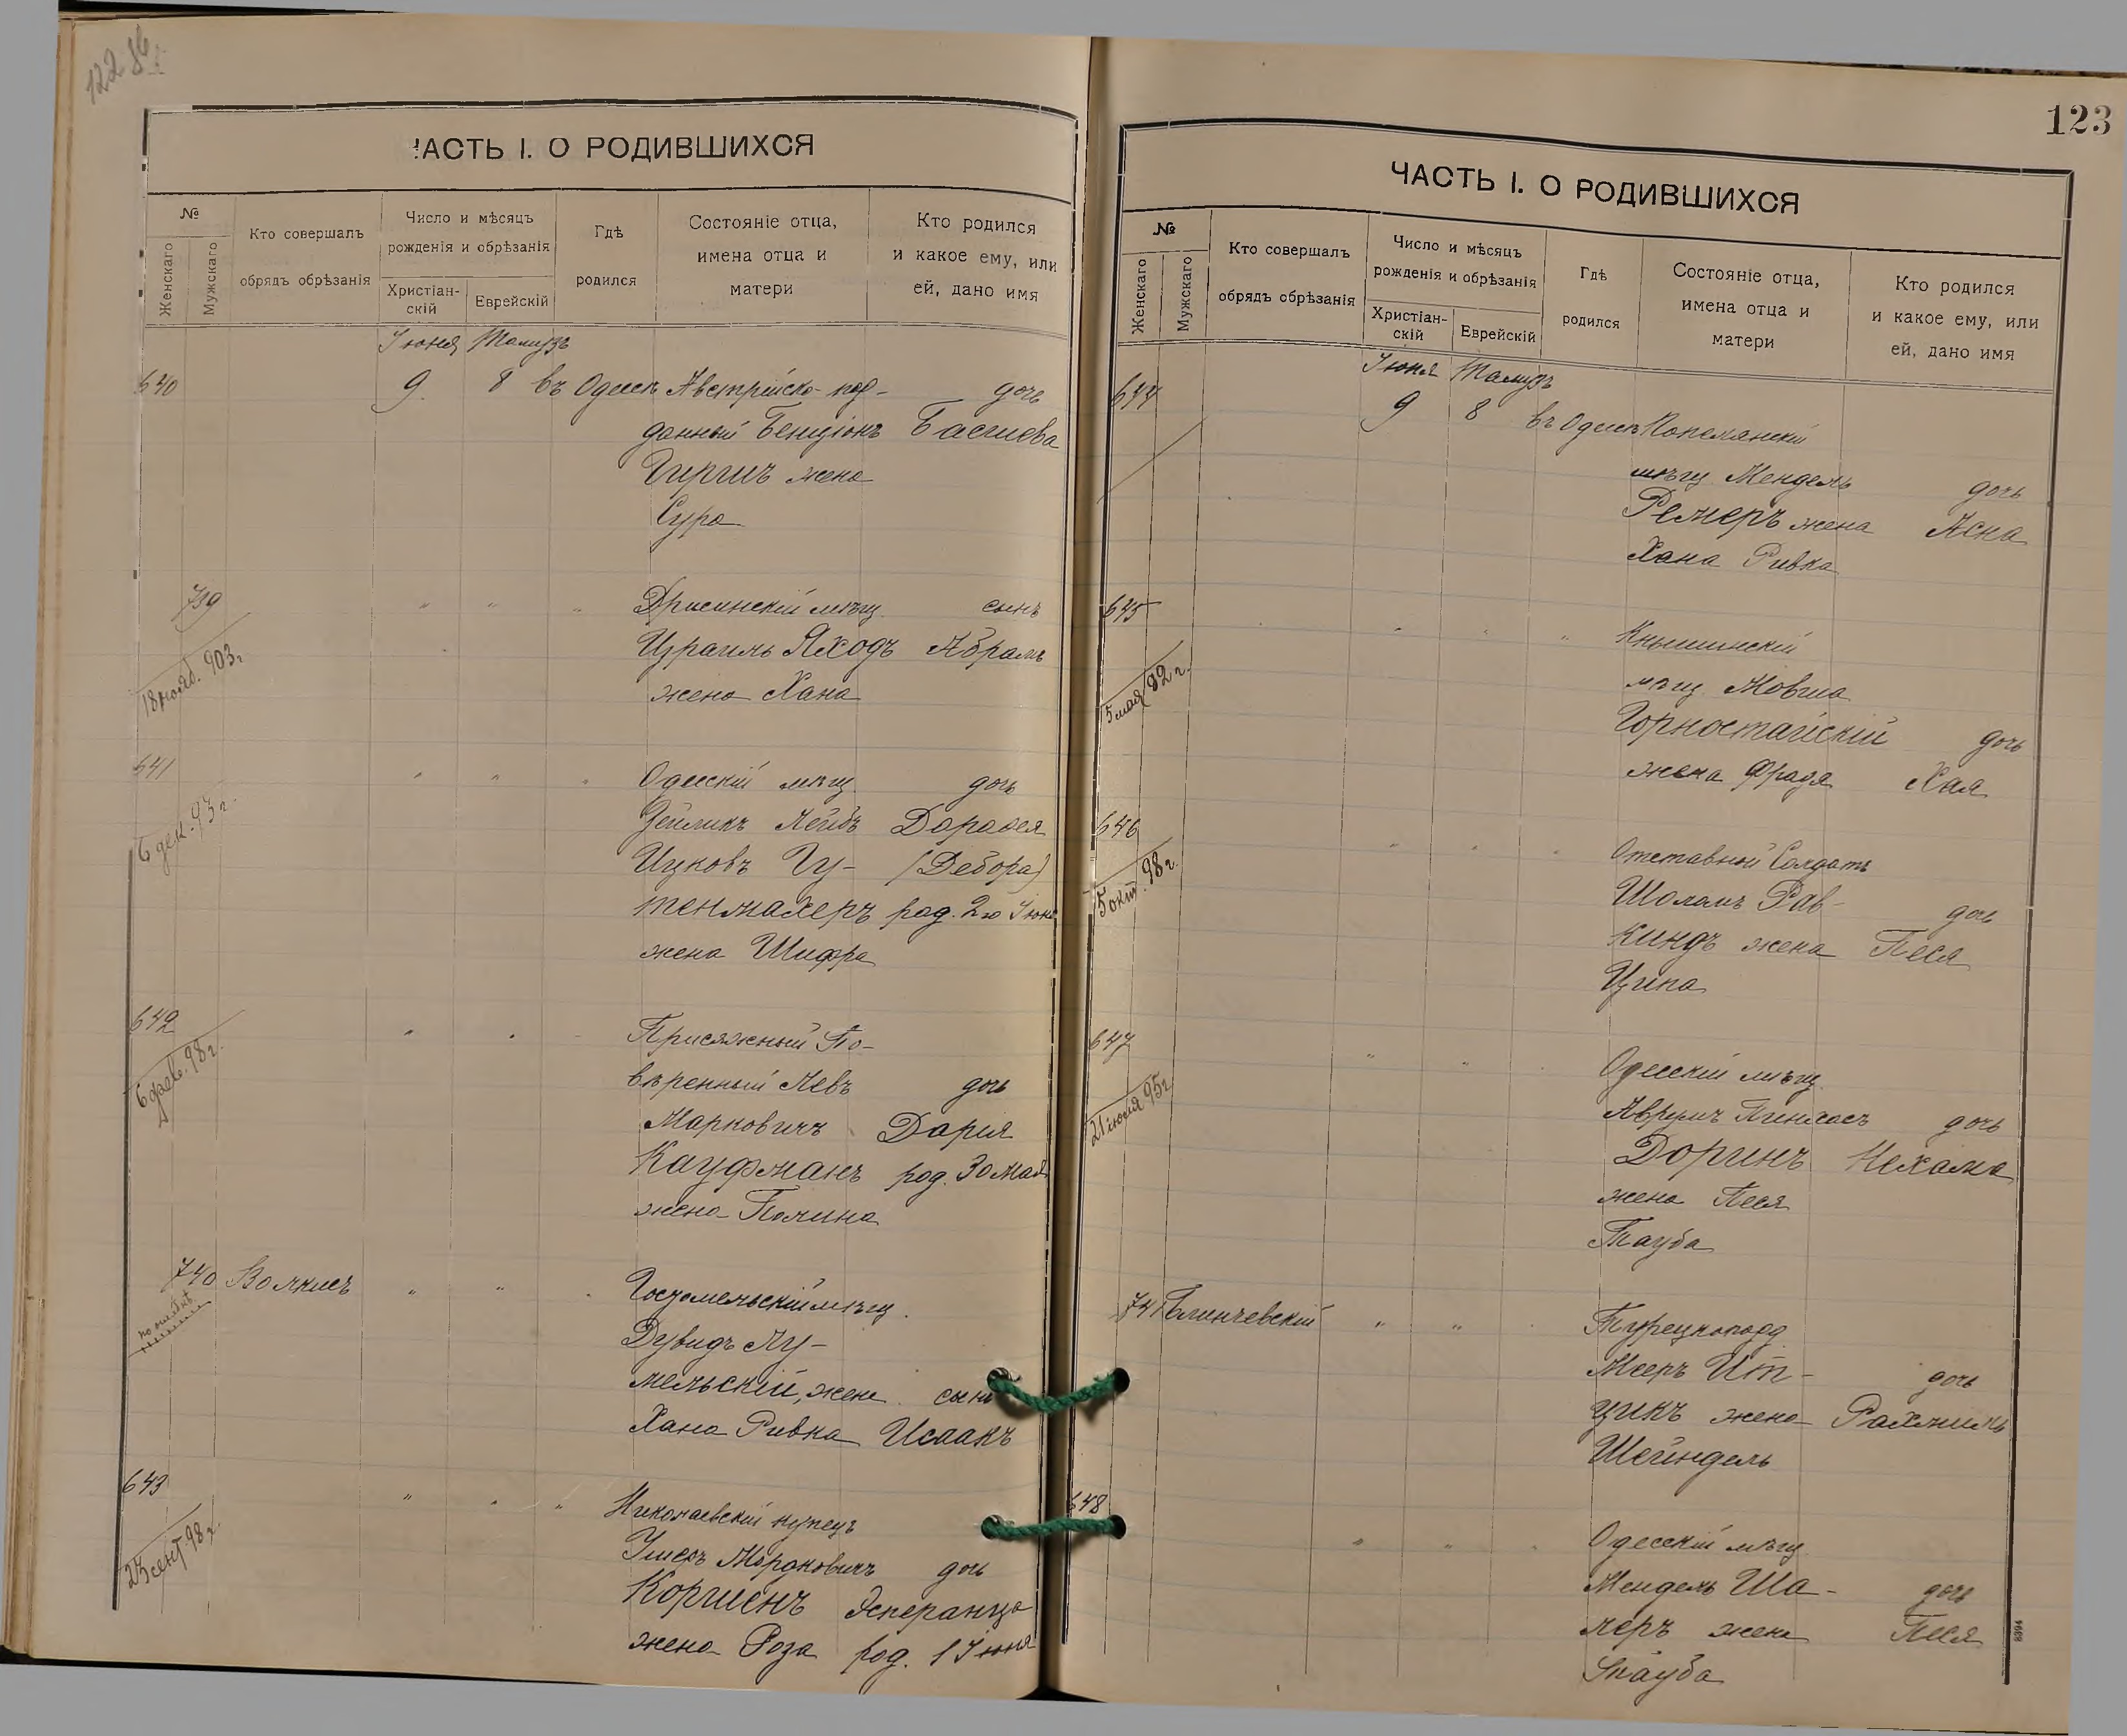 122 
ЧАСТЬ I. О РОДИВШИХСЯ
№
Женскаго
Мужскаго
Кто совершалъ
обрядъ обрѣзанія
Число и мѣсяцъ
рожденія и обрѣзанія
Христіан-
скій
Еврейскій
Гдѣ
родился
Состояніе отца,
имена отца и
матери
Кто родился
и какое ему, или
ей, дано имя
Іюня Тамузъ
640 9 8 въ Одессѣ Австрійско-под- дочь
данный Бенціонъ Басшева
Гиршъ жена
Сура
739 " " " Дрисинскій мѣщ. сынъ
Израиль Яходъ Абрамъ
18 нояб. 903 г.
жена Хана
641 " " " Одесскій мѣщ. дочь
Лейбъ Дорофея
6 дек. 93 г.
Ицковъ Гу- (Дебора)
тенмахеръ род. 2го Іюня
жена Шифра
642 " " Присяжный По-
вѣренный Левъ дочь
6 февр. 98 г.
Марковичъ Дарья
Кауфманъ род. 30 Мая
жена Полина
740 Волкисъ " " Гостомельскій мѣщ.
Дувидъ Лу-
мельскій, жена сынъ
Хана Ривка Исаакъ
643 " " " Николаевскій купецъ
Ушеръ Мордковичъ дочь
25 сент. 98 г.
Коршенъ Эсперанца
жена Роза род. 1 Іюня
123
ЧАСТЬ I. О РОДИВШИХСЯ
№
Женскаго
Мужскаго
Кто совершалъ
обрядъ обрѣзанія
Число и мѣсяцъ
рожденія и обрѣзанія
Христіан-
скій
Еврейскій
Гдѣ
родился
Состояніе отца,
имена отца и
матери
Кто родился
и какое ему, или
ей, дано имя
Іюня Тамузъ
644 9 8 въ Одессѣ
мѣщ. Мендель дочь
Ремеръ жена Асна
Хана Ривка
645 " " " Кнышинскій
мѣщ. Мовша
15 мая 92 г.
Горностайскій дочь
жена Фрадя Хая
646 " " " Отставной Солдатъ
Шоломъ Рав- дочь
5 окт. 98 г.
киндъ жена Песя
Ципа
647 " " Одесскій мѣщ.
Аврумъ Пинхасъ дочь
21 іюля 95 г.
Доринъ Нехама
жена Песя
Тауба
741 Блинчевскій " " Турецкоподд.
Мееръ Ит- дочь
цикъ жена Рахмиль
Шейндель
648 " " " Одесскій мѣщ.
Мендель Ша- дочь
леръ жена Песя
Тауба
8394